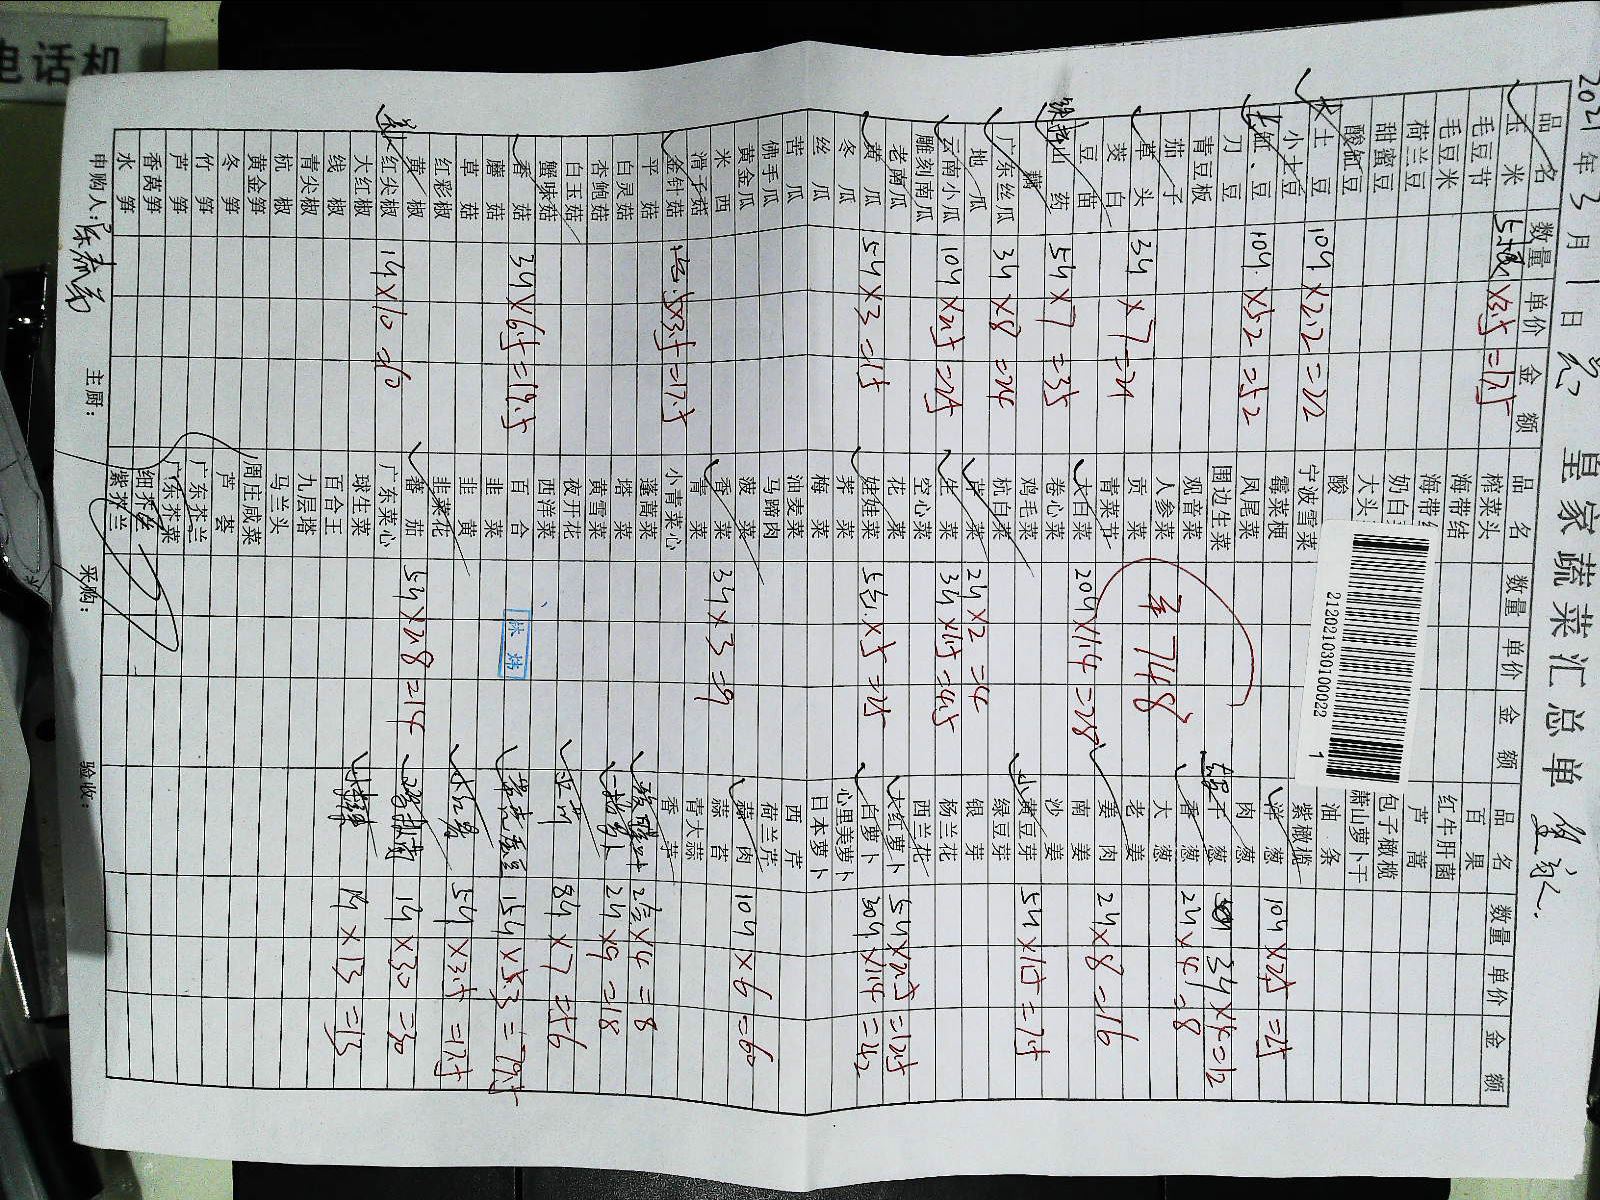 电话机
2021年3月1日
皇家蔬菜汇总单
品名 数量 单价 金额 品名 数量 单价 金额 品名 数量 单价 金额
玉米 ×3.5=17.5 榨菜头 百果
毛豆节 海带结 红牛肝菌
毛豆米 芦蒿
荷兰豆 包子橄榄
甜蜜豆 大头 萧山萝卜干
酸缸豆 酸 油条
大土豆 10斤×2.2=22 宁波雪菜 紫橄榄
小土豆 霉菜梗 洋葱 10斤×2.5=25
长缸豆 10斤×5.2=52 凤尾菜 肉葱
刀豆 围边生菜 干葱 3斤×4=12
青豆板 观音菜 香葱 2斤×4=8
茄子 人参菜 大葱
草头 3斤×7=21 贡菜 老姜
茭白 青菜茄 姜肉 2斤×8=16
豆苗 大白菜 20斤×1.4=28 南姜
山药 5斤×7=35 卷心菜 沙姜
地瓜 鸡毛菜 小黄豆芽 5斤×1.5=7.5
广东丝瓜 3斤×8=24 杭白菜 绿豆芽
雕刻南瓜 芹菜 2斤×2=4 银芽
云南小瓜 10斤×2.5=25 生菜 3斤×1.5=4.5 杨兰花
老南瓜 空心菜 西兰花
花菜 大红萝卜 5斤×2.5=12.5
黄瓜 5斤×3=15 娃娃菜 ×5=25 白萝卜 30斤×1.4=42
冬瓜 荠菜 心里美萝卜
丝瓜 梅菜 日本萝卜
苦瓜 油麦菜 西芹
佛手瓜 马蹄肉 荷兰芹
黄金瓜 菠菜 蒜肉 10斤×6=60
西米 香菜 3斤×3=9 蒜苔
滑子菇 青菜 青大蒜
金针菇 ×3.5=17.5 小青菜心 香芹
平菇 蓬蒿菜 ×4=8
白灵菇 塔菜 2斤×9=18
杏鲍菇 黄雪菜
白玉菇 夜开花 8斤×7=56
蟹味菇 西洋菜
香菇 3斤×6.5=19.5 百合 15斤×5.3=79.5
蘑菇 韭菜
草菇 韭黄 5斤×3.5=17.5
红彩椒 韭菜花
黄椒 番茄 5斤×2.8=14 1斤×30=30
红尖椒 1斤×10=10 广东菜心
大红椒 球生菜 1斤×13=13
线椒 百合王
青尖椒 九层塔
杭椒 马兰头
黄金笋 周庄咸菜
冬笋 芦荟
竹笋 广东芥兰
芦笋 广东芥菜
香莴笋 细芥丝
水笋 紫芥兰
¥748
2120210301000022 1
申购人: 主厨: 采购: 验收: